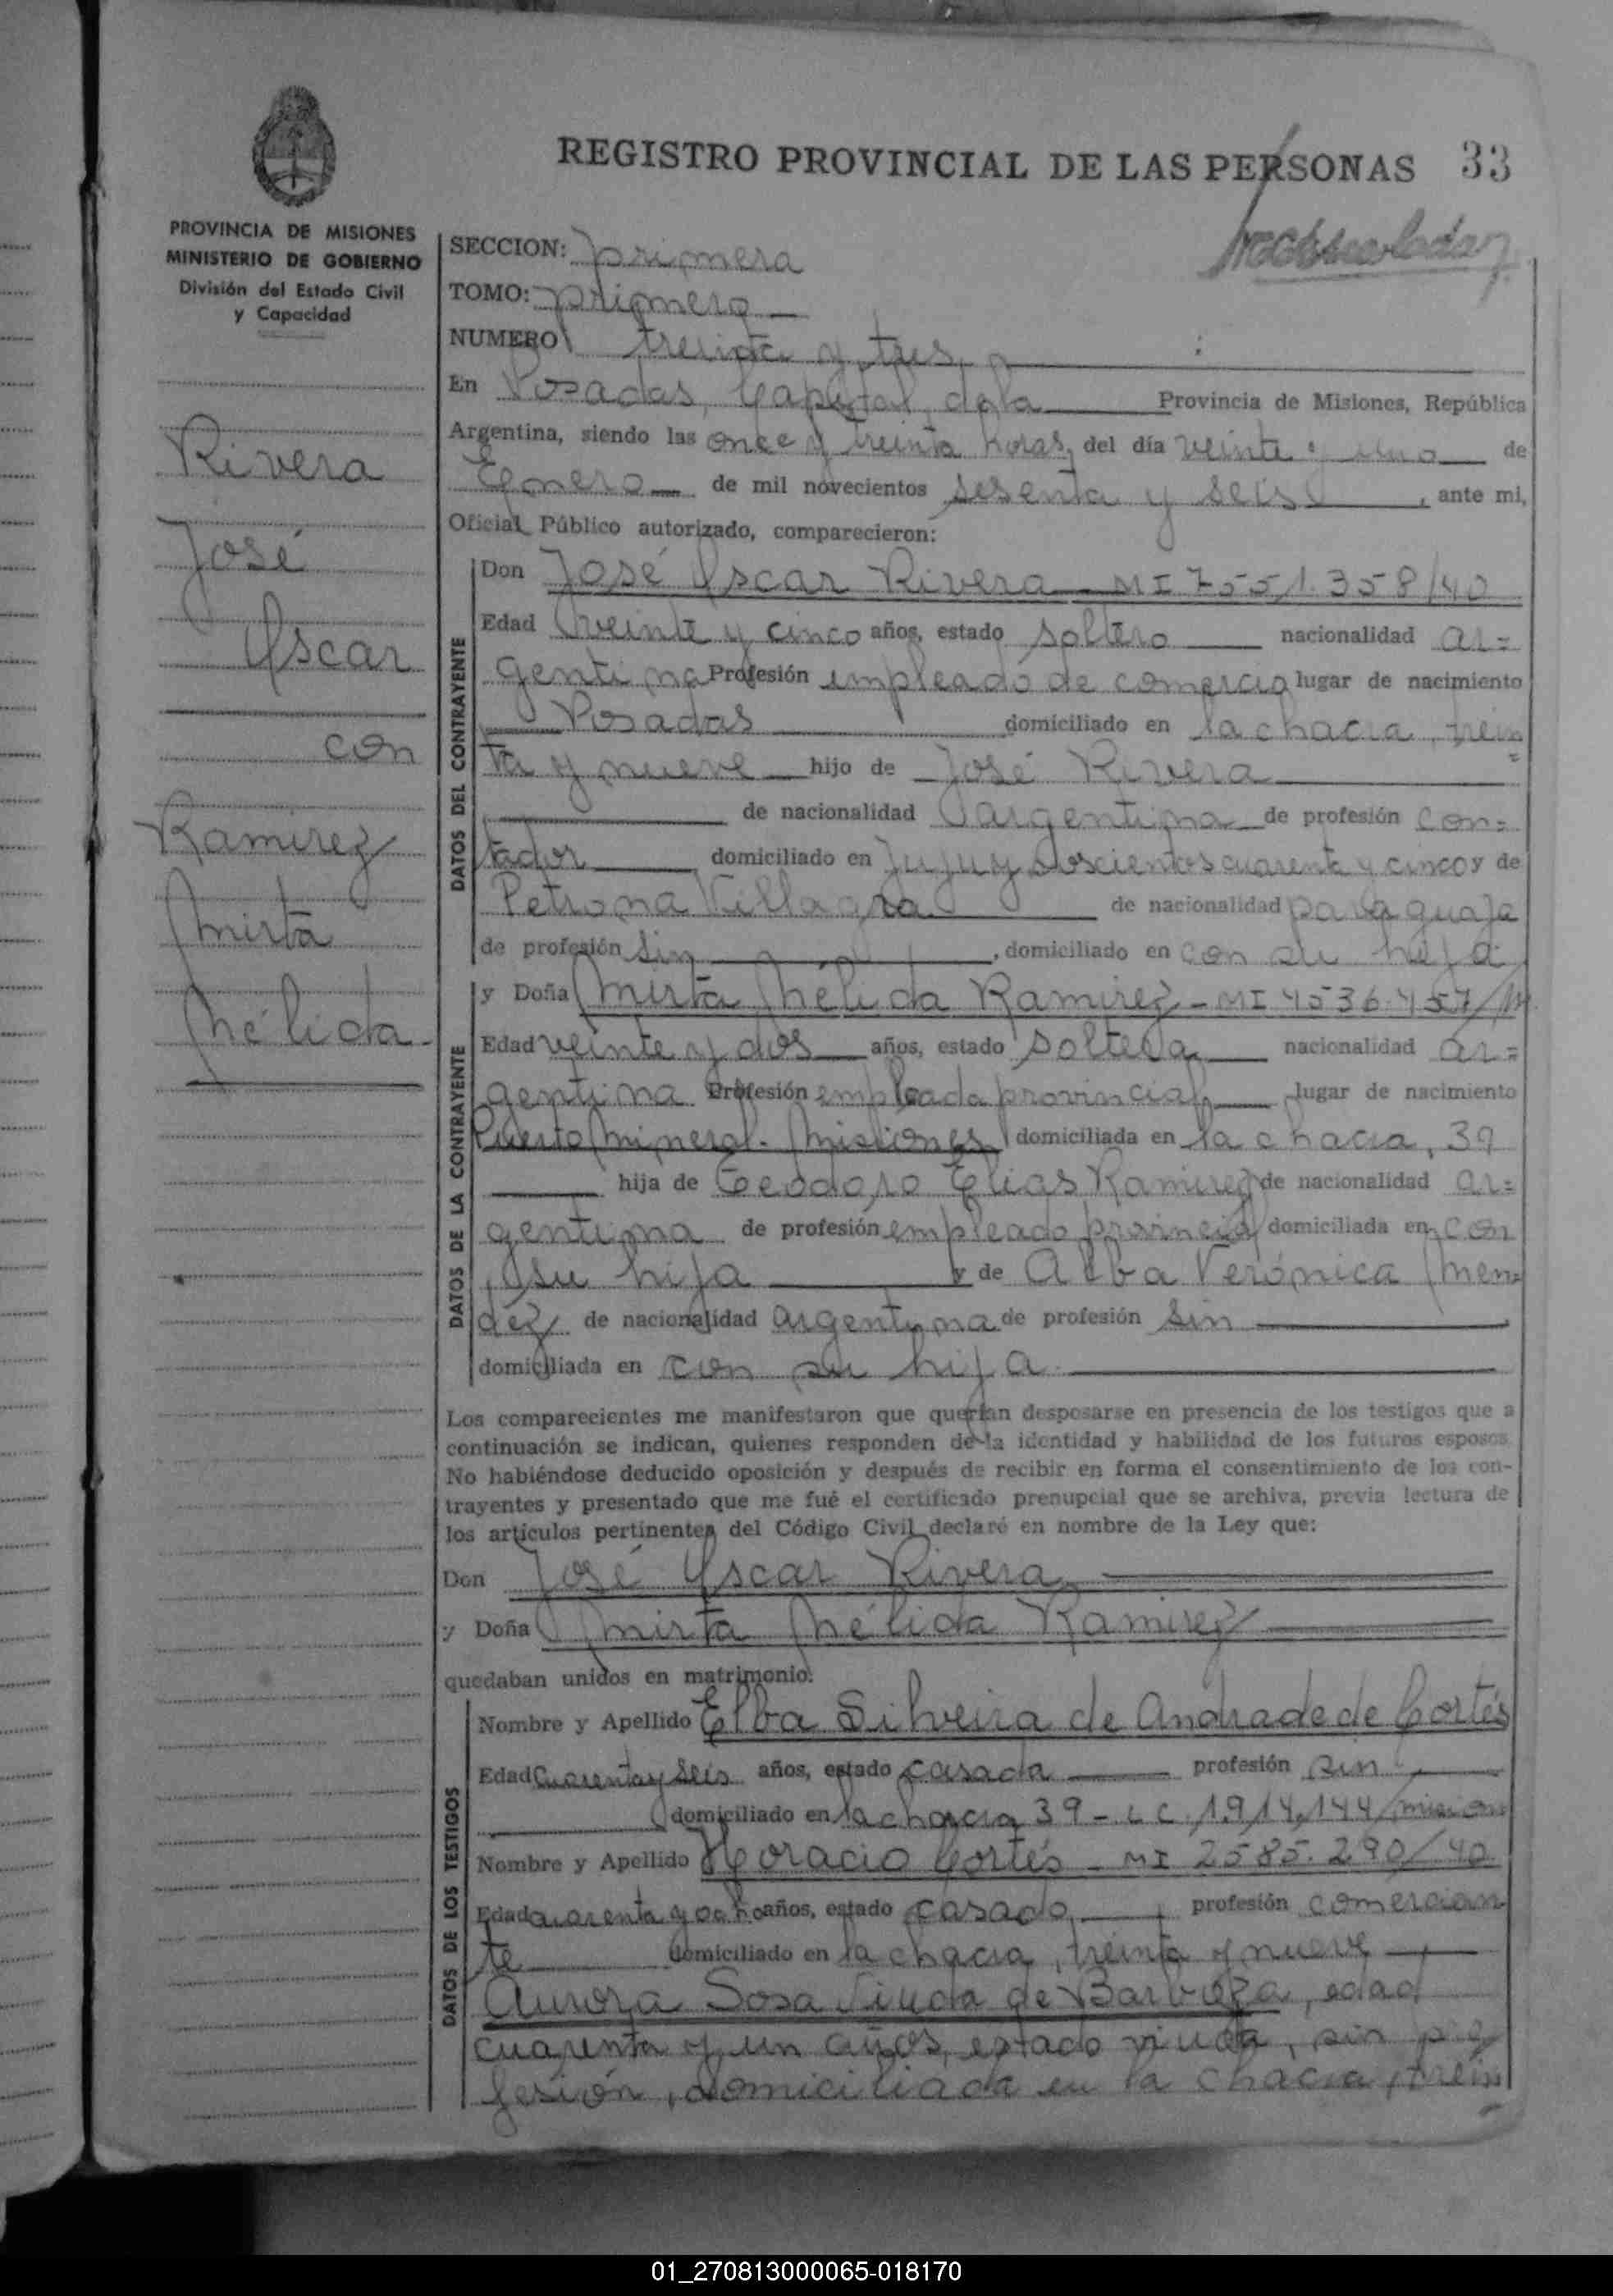 REGISTRO PROVINCIAL DE LAS PERSONAS 33
PROVINCIA DE MISIONES
MINISTERIO DE GOBIERNO
División del Estado Civil
y Capacidad
Rivera
José
Oscar
con
Ramirez
Mirta
Nélida
SECCION: primera
TOMO: primero
NUMERO treinta y tres
En Posadas, Capital de la Provincia de Misiones, República
Argentina, siendo las once y treinta horas, del día veinte y uno de
Enero de mil novecientos sesenta y seis, ante mi,
Oficial Público autorizado, comparecieron:
DATOS DEL CONTRAYENTE
Don José Oscar Rivera - MI 7551.358/40
Edad veinte y cinco años, estado soltero nacionalidad ar=
gentina Profesión empleado de comercio lugar de nacimiento
Posadas domiciliado en la chacra, trein
=
ta y nueve hijo de José Rivera
de nacionalidad argentina de profesión con=
tador domiciliado en Jujuy doscientos cuarenta y cinco y de
Petrona Villagra de nacionalidad paraguaja
de profesión sin, domiciliado en con su hija
DATOS DE LA CONTRAYENTE
y Doña Mirta Nélida Ramirez - MI 4536.457/
Edad veinte y dos años, estado soltera nacionalidad ar=
gentina Profesión empleada provincial, lugar de nacimiento
Puerto Mineral - Misiones domiciliada en la chacra, 39
hija de Teodoro Elias Ramirez de nacionalidad ar=
gentina de profesión empleado provincial domiciliada en con
su hija y de Alba Verónica Men=
dez de nacionalidad argentina de profesión sin
domiciliada en con su hija.
Los comparecientes me manifestaron que querían desposarse en presencia de los testigos que a
continuación se indican, quienes responden de la identidad y habilidad de los futuros esposos.
No habiéndose deducido oposición y después de recibir en forma el consentimiento de los con-
trayentes y presentado que me fué el certificado prenupcial que se archiva, previa lectura de
los artículos pertinentes del Código Civil declaré en nombre de la Ley que:
Don José Oscar Rivera
y Doña Mirta Nélida Ramirez
quedaban unidos en matrimonio.
DATOS DE LOS TESTIGOS
Nombre y Apellido Elba Silveira de Andrade de Cortés
Edad cuarenta y seis años, estado casada profesión sin
domiciliado en la chacra 39 - L C. 1.914.144/
Nombre y Apellido Horacio Cortés - MI 2585.290/40
Edad cuarenta y ocho años, estado casado, profesión comercian
te domiciliado en la chacra, treinta y nueve
Aurora Sosa Viuda de Barboza, edad
cuarenta y un años, estado viuda, sin pro
fesión, domiciliada en la chacra, trein
01_270813000065-018170